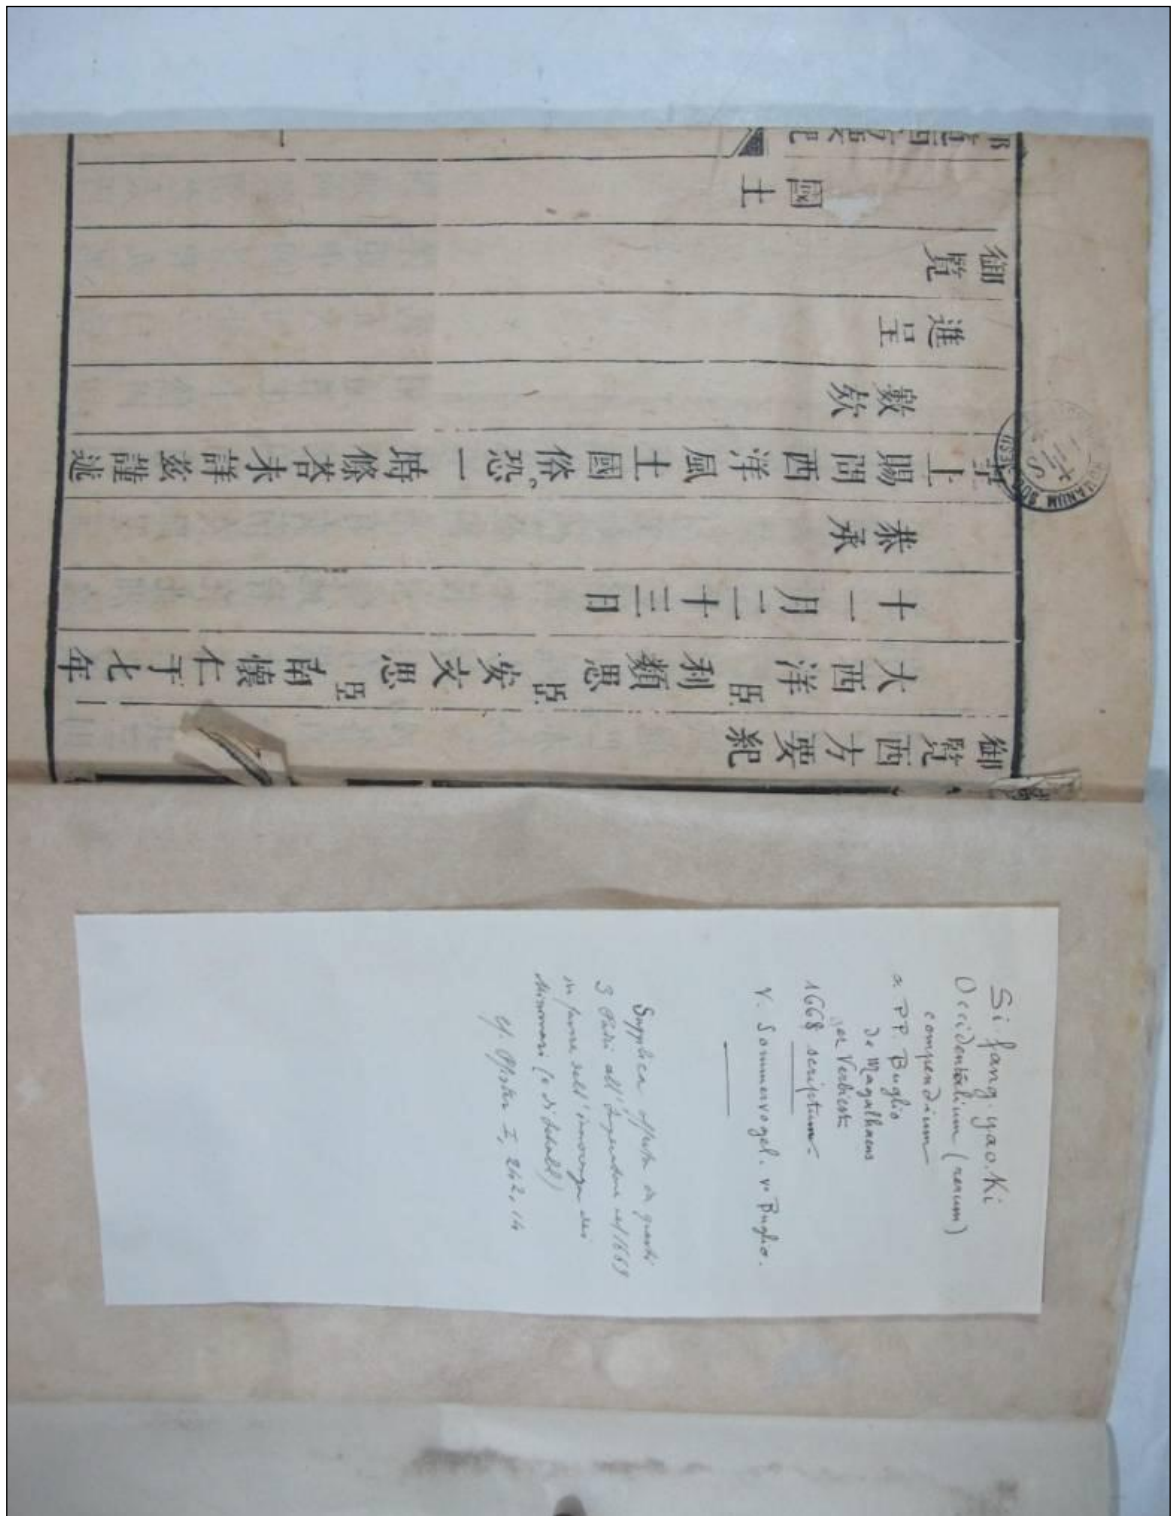 御覽西方要紀
大西洋臣利類思臣安文思臣南懷仁于七年
十一月二十三日
恭承
皇上賜問西洋風土國俗恐一時條荅未詳茲謹述
數欵
進呈
御覽
國土
一
Si fang. yao. Ki
Occidentalium (rerum)
compendium
a PP. Buglio
de Magalhaens
Verbiest
1668 scriptum.
V. Sommervogel. v. Buglio.
Supplica offerta da questi
3 Padri all' Imperatore 1669
in favore dell' innocenza dei
Missionari
cf. Pfister I, 242, 14